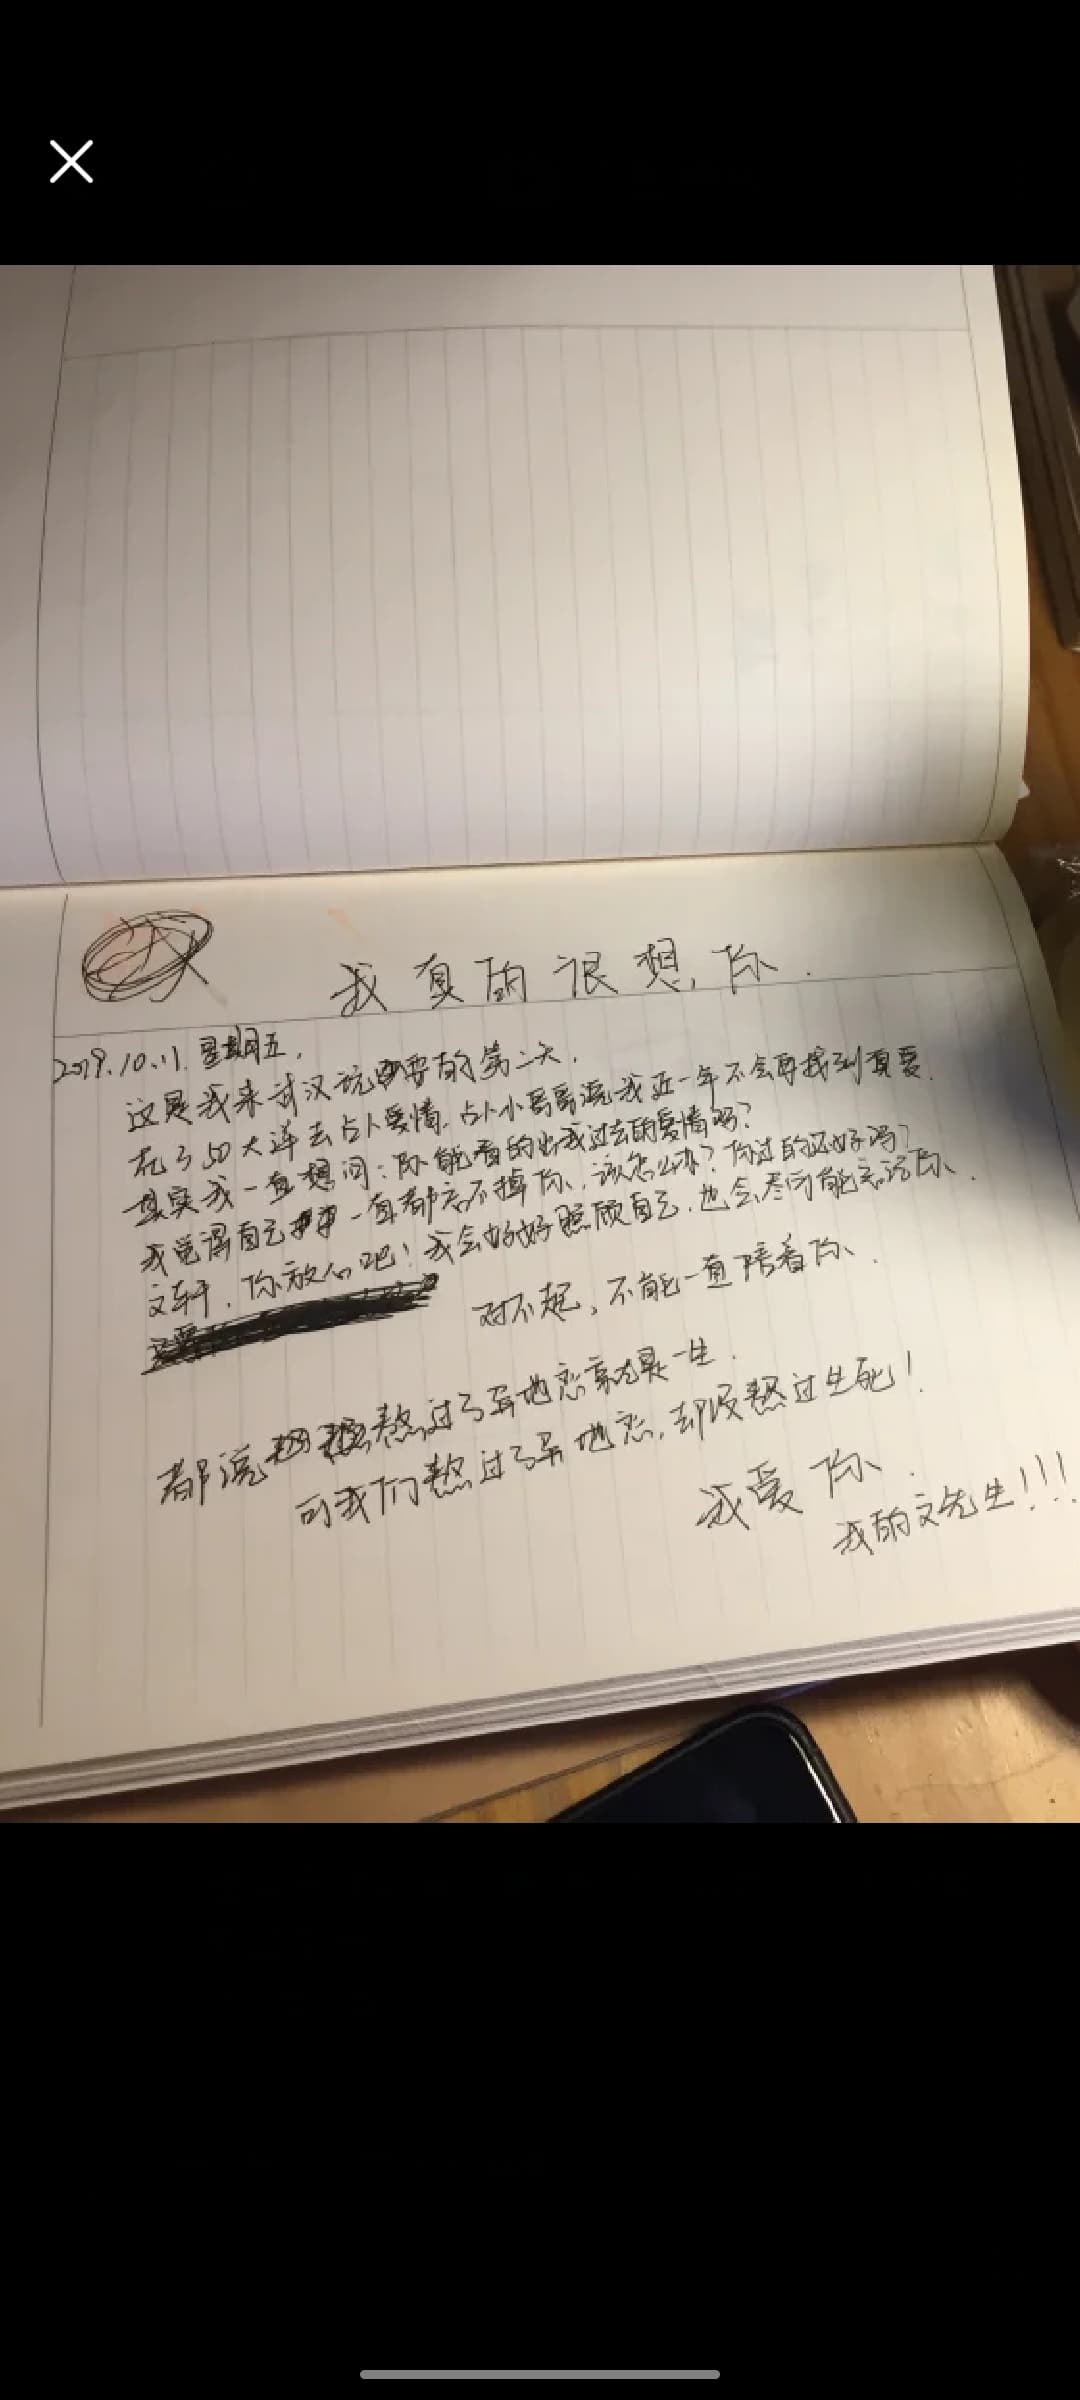 我真的很想你.
2019.10.11.星期五.
这是我来武汉玩耍的第二天.
花了50大洋去占卜爱情.占卜小哥哥说我近一年不会再找到真爱.
其实我一直想问:你能看的出我过去的爱情吗?
我觉得自己一直都忘不掉你.该怎么办?你过的还好吗?
文轩.你放心吧!我会好好照顾自己.也会尽可能忘记你.
对不起,不能一直陪着你.
都说熬过了异地恋就是一生.
可我们熬过了异地恋,却没熬过生死!
我爱你.
我的文先生!!!